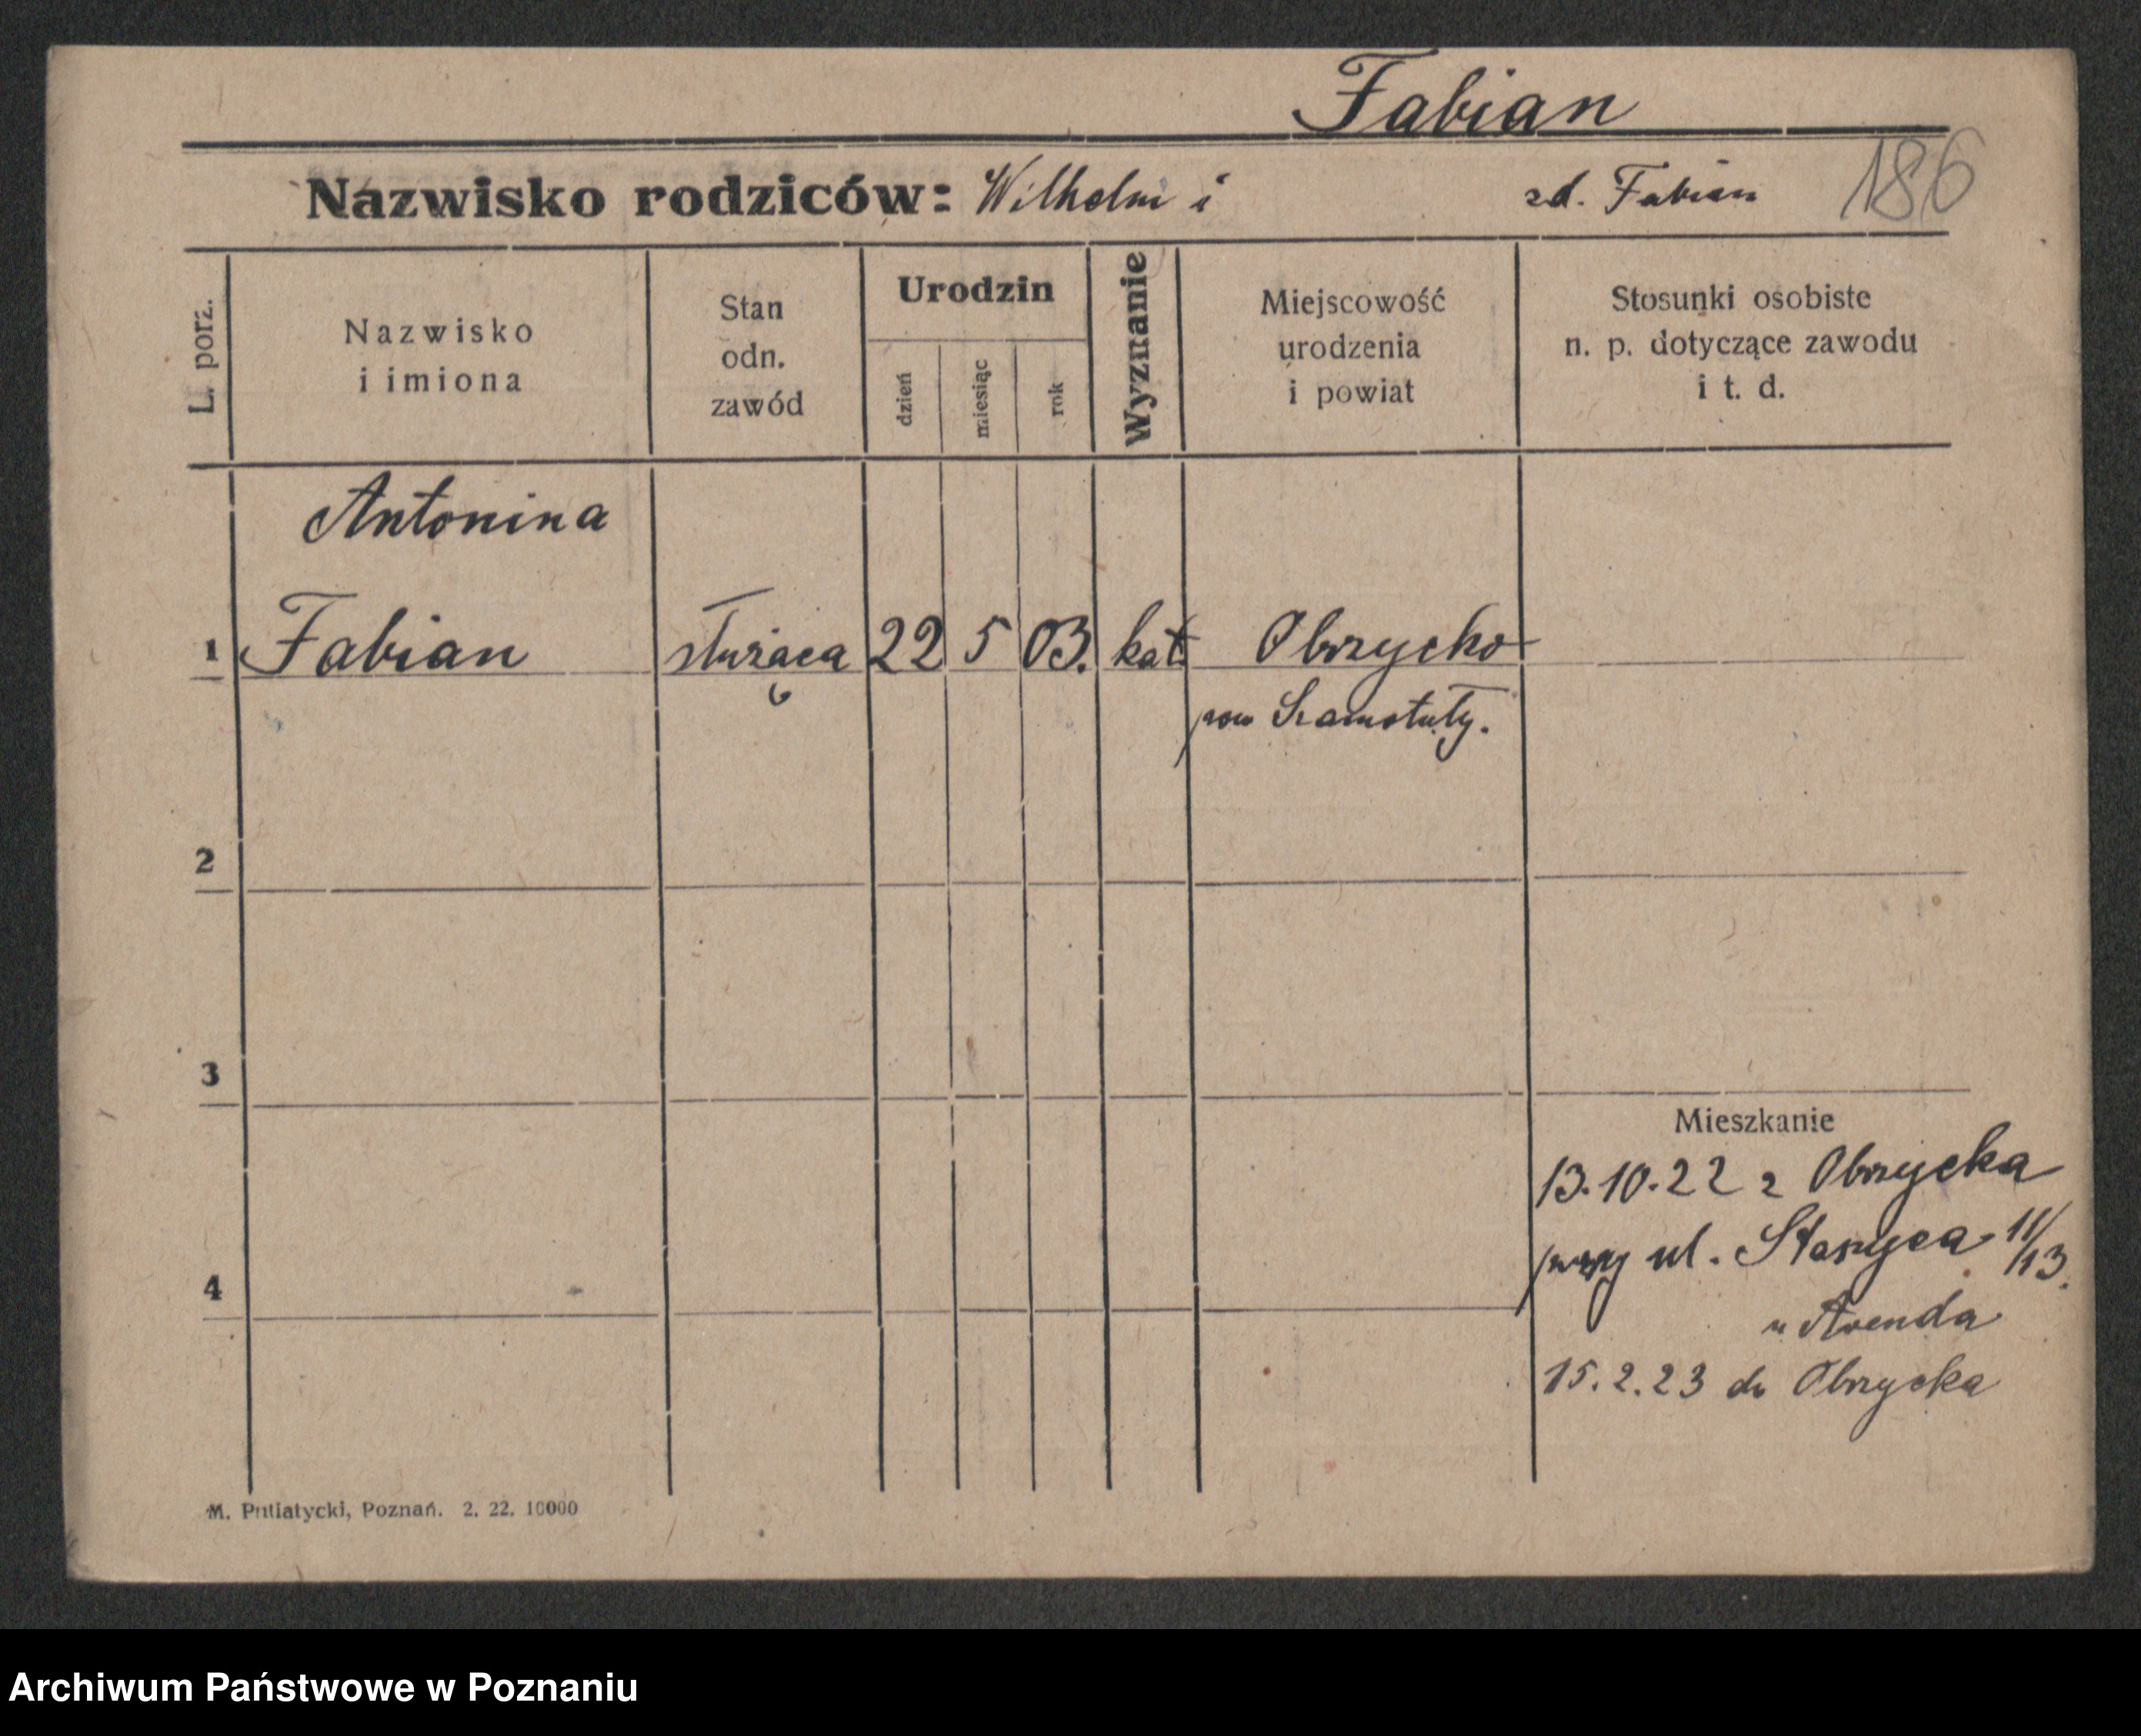 Fabian
Nazwisko rodziców: Wilhelm i zd. Fabian 186
L. porz.
Nazwisko
i imiona
Stan
odn.
zawód
Urodzin
dzień
miesiąc
rok
Wyznanie
Miejscowość
urodzenia
i powiat
Stosunki osobiste
n. p. dotyczące zawodu
i t. d.
Antonina
1 Fabian służąca 22 5 03. kat Obrzycko
pow Szamotuły.
2
3
Mieszkanie
13.10.22 z Obrzycka
przy ul. Staszyca 11/13.
4
u Arenda
15.2.23 do Obrzycka
M. Putiatycki, Poznań. 2. 22. 10000
Archiwum Państwowe w Poznaniu